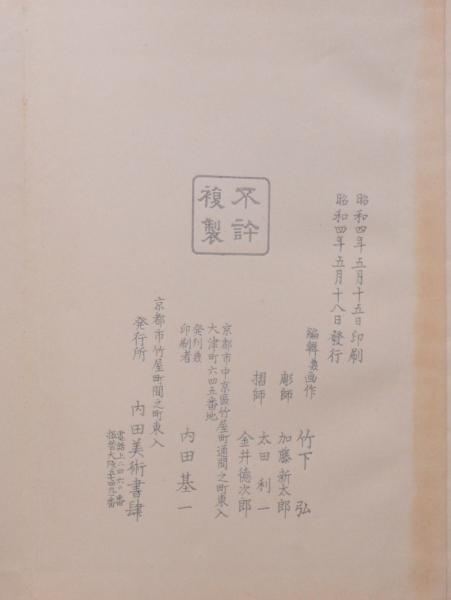 昭和四年五月十五日印刷
昭和四年五月十八日發行
不許
複製
編輯兼画作 竹下弘
彫師 加藤新太郎
摺師 太田利一
金井德次郎
京都市中京區竹屋町通間之町東入
大津町六四五番地
印刷者 内田基一
京都市竹屋町間之町東入
発行所 内田美術書肆